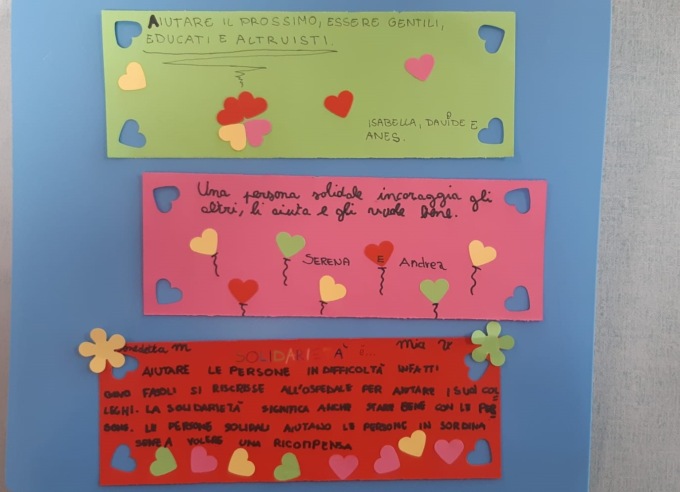 AIUTARE IL PROSSIMO, ESSERE GENTILI,
EDUCATI E ALTRUISTI.
ISABELLA, DAVIDE E
ANES.
Una persona solidale incoraggia gli
altri, li aiuta e gli vuole bene.
SERENA E Andrea
Benedetta M Mia V
SOLIDARIETÀ È...
AIUTARE LE PERSONE IN DIFFICOLTÀ INFATTI
GINO FASOLI SI RISCRISSE ALL'OSPEDALE PER AIUTARE I SUOI COL
LEGHI. LA SOLIDARIETÀ SIGNIFICA ANCHE STARE BENE CON LE PER
SONE. LE PERSONE SOLIDALI AIUTANO LE PERSONE IN SORDINA
SENZA VOLERE UNA RICOMPENSA